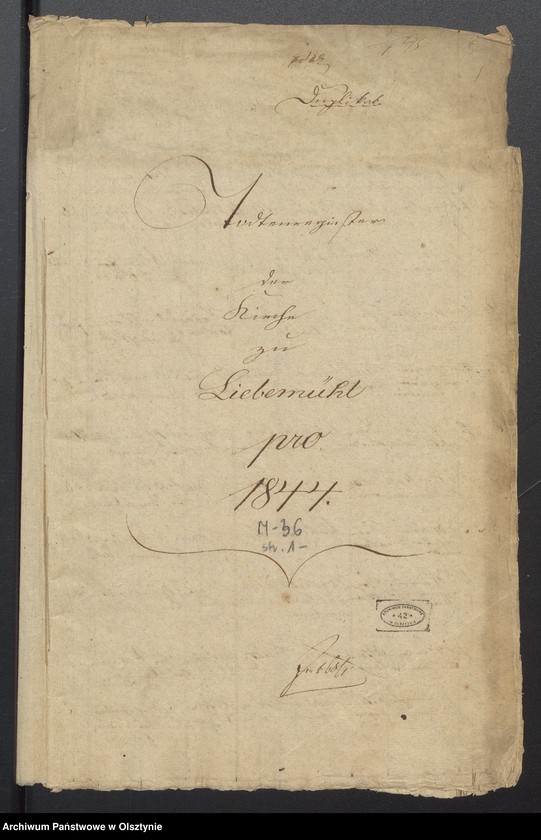 Duplikat.
Todtenregister
der
Kirche
zu
Liebemühl
pro.
1844.
M-36
str. 1-
42
Archiwum Państwowe w Olsztynie